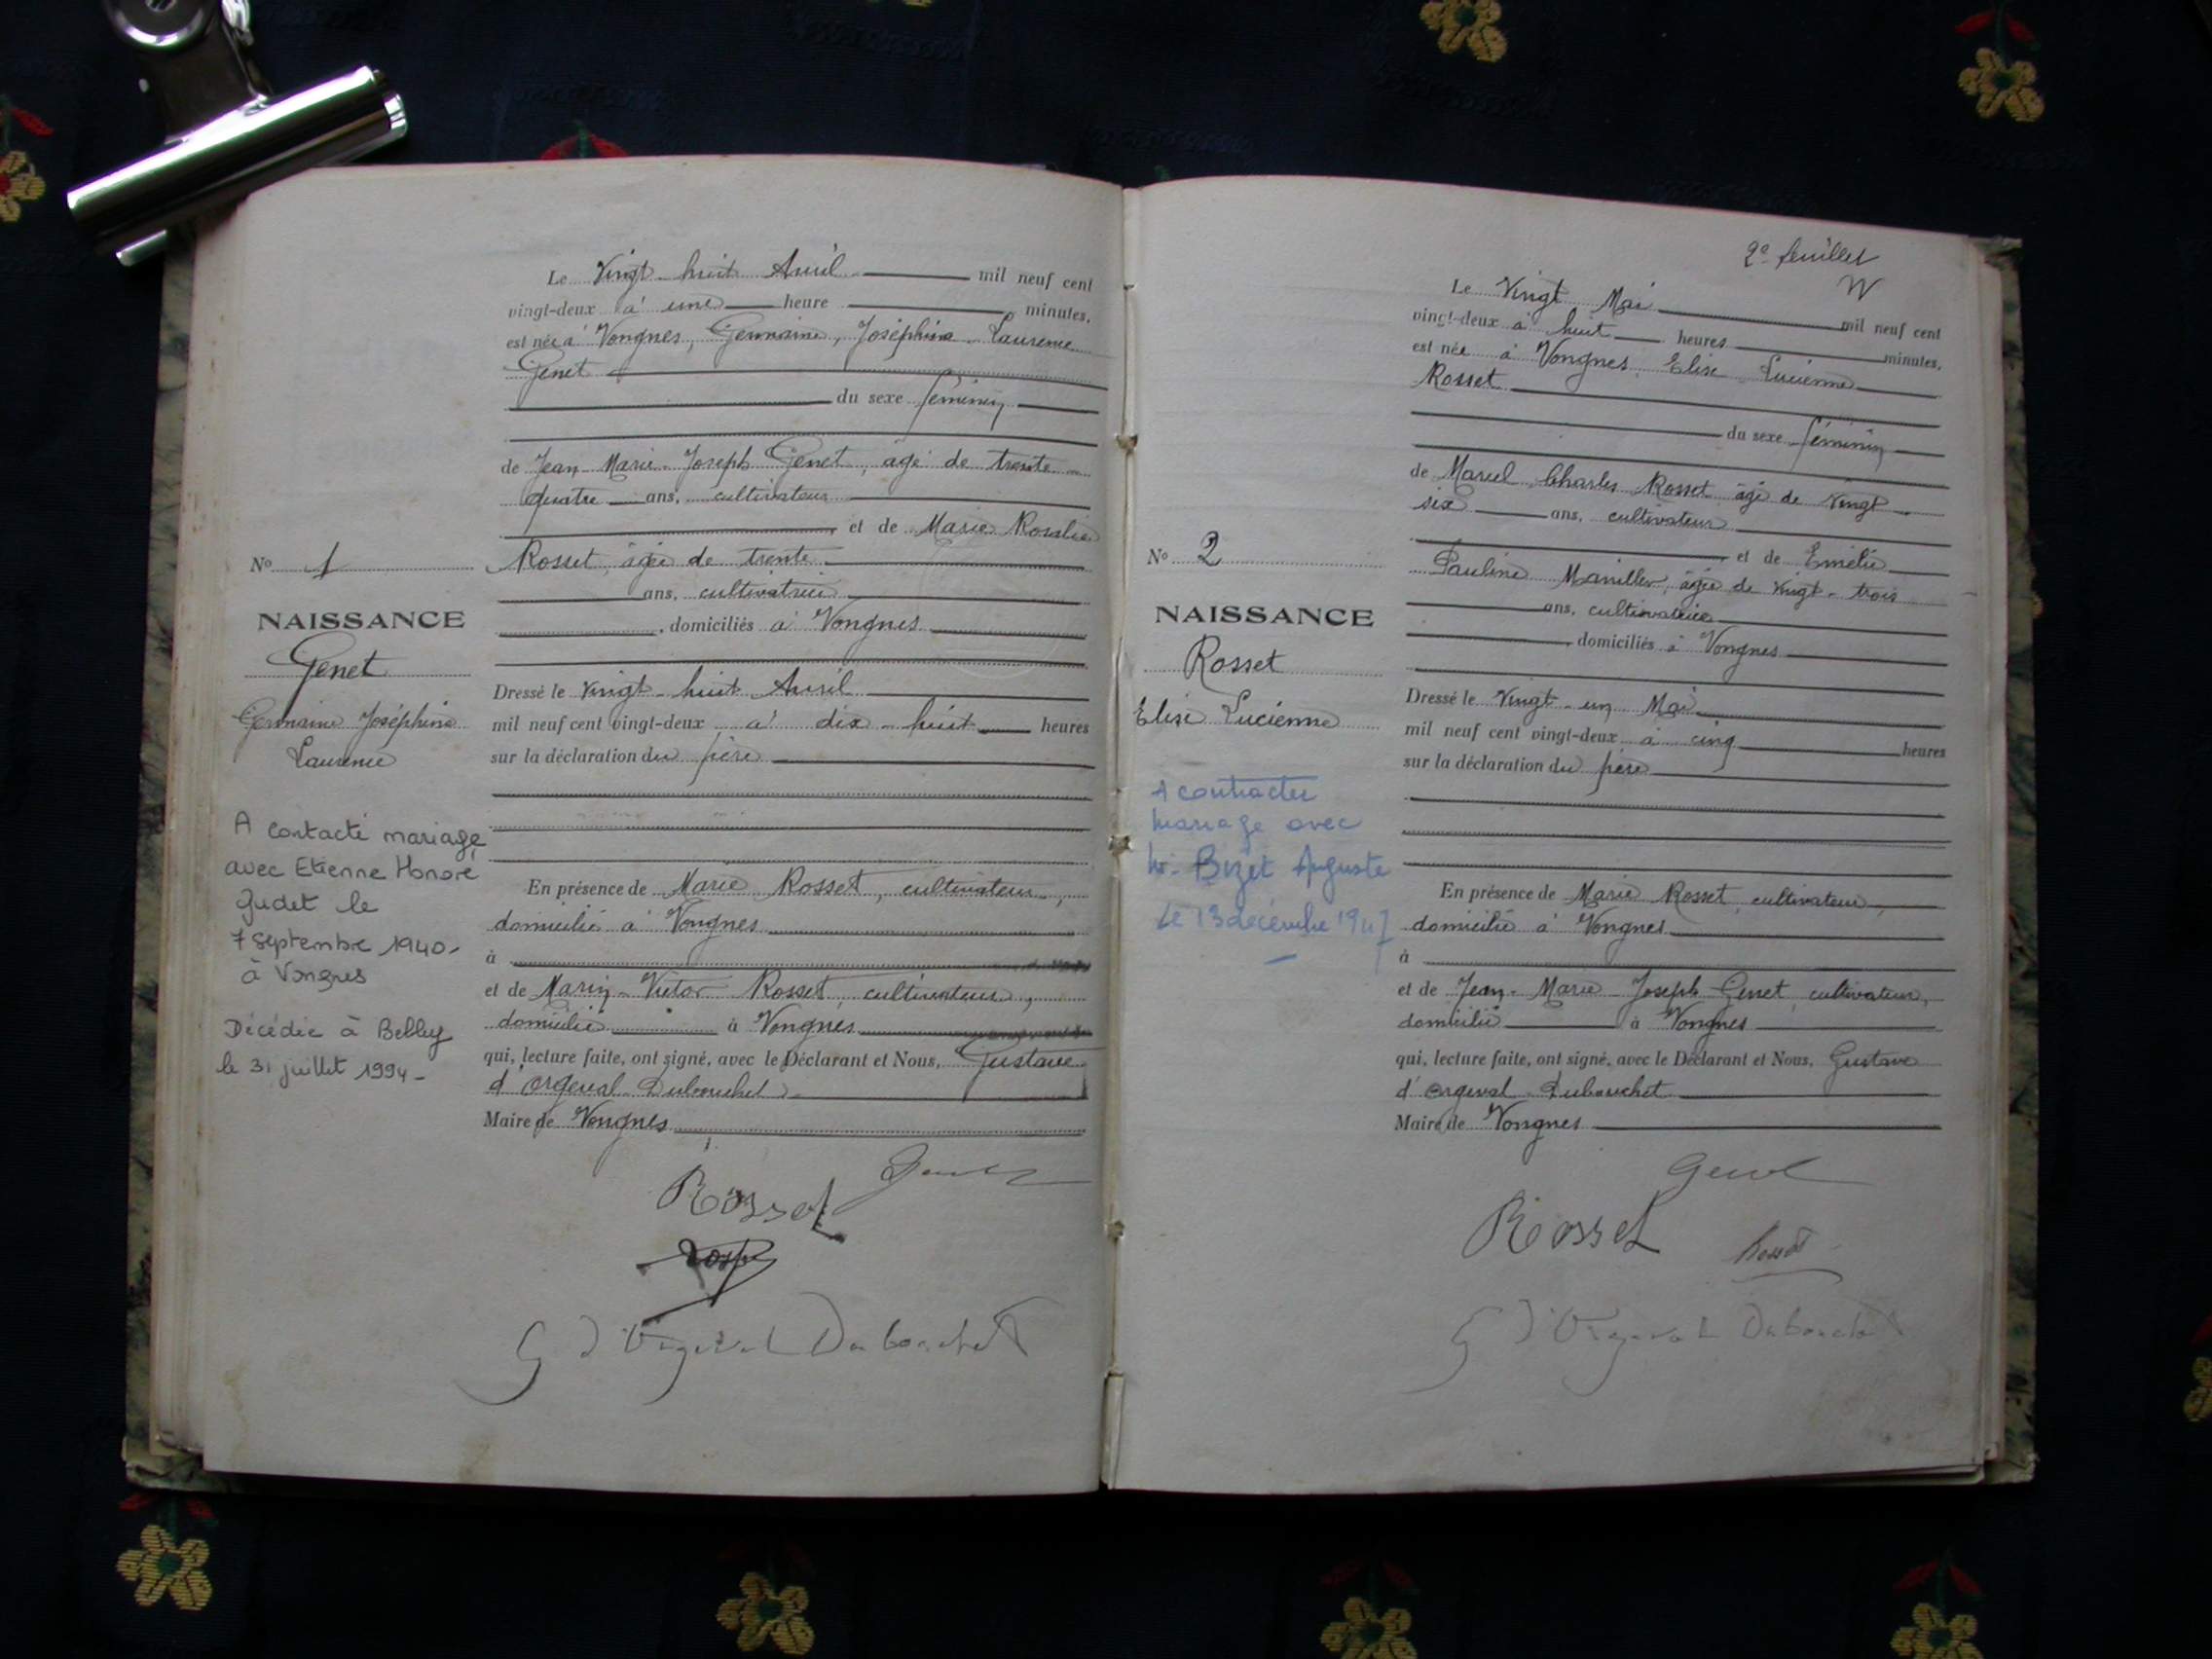 Le Vingt-huit Avril mil neuf cent
vingt-deux à une heure minutes,
est née à Vongnes, Germaine, Joséphine Laurence
Genet
du sexe féminin
de Jean-Marie-Joseph Genet, âgé de trente-
quatre ans, cultivateur
et de Marie Rosalie
Rosset, âgée de trente
ans, cultivatrice
, domiciliés à Vongnes
Dressé le vingt-huit Avril
mil neuf cent vingt-deux à dix-huit heures
sur la déclaration du père
En présence de Marie Rosset, cultivateur,
domicilié à Vongnes
à
et de Marin-Victor Rosset, cultivateur,
domicilié à Vongnes
qui, lecture faite, ont signé, avec le Déclarant et Nous, Gustave
d'Orgeval Dubouchet
Maire de Vongnes
Rosset
G d'Orgeval Dubouchet
No 1
NAISSANCE
Genet
Germaine Joséphine
Laurence
A contacté mariage
avec Etienne Honoré
Gudet le
7 septembre 1940-
à Vongnes
Décédée à Belley
le 31 juillet 1994-
2e feuillet
Le Vingt Mai mil neuf cent
vingt-deux à huit heures minutes,
est née à Vongnes Elise Lucienne
Rosset
du sexe féminin
de Marcel Charles Rosset âgé de vingt-
six ans, cultivateur
et de Emélie
Pauline âgée de vingt-trois
ans, cultivatrice
, domiciliés à Vongnes
Dressé le Vingt-un Mai
mil neuf cent vingt-deux à cinq heures
sur la déclaration du père
En présence de Marie Rosset, cultivateur,
domicilié à Vongnes
à
et de Jean-Marie Joseph Genet cultivateur,
domicilié à Vongnes
qui, lecture faite, ont signé, avec le Déclarant et Nous, Gustave
d'Orgeval Dubouchet
Maire de Vongnes
Genet
Rosset
Rosset
G d'Orgeval Dubouchet
No 2
NAISSANCE
Rosset
Elise Lucienne
A contracter
mariage avec
Mr Bizet Auguste
Le 13 décembre 1947